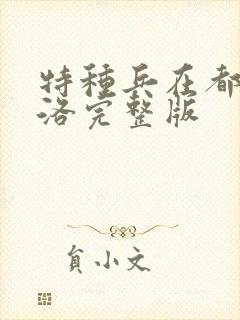 特種兵在都
洛完整版
貟小文